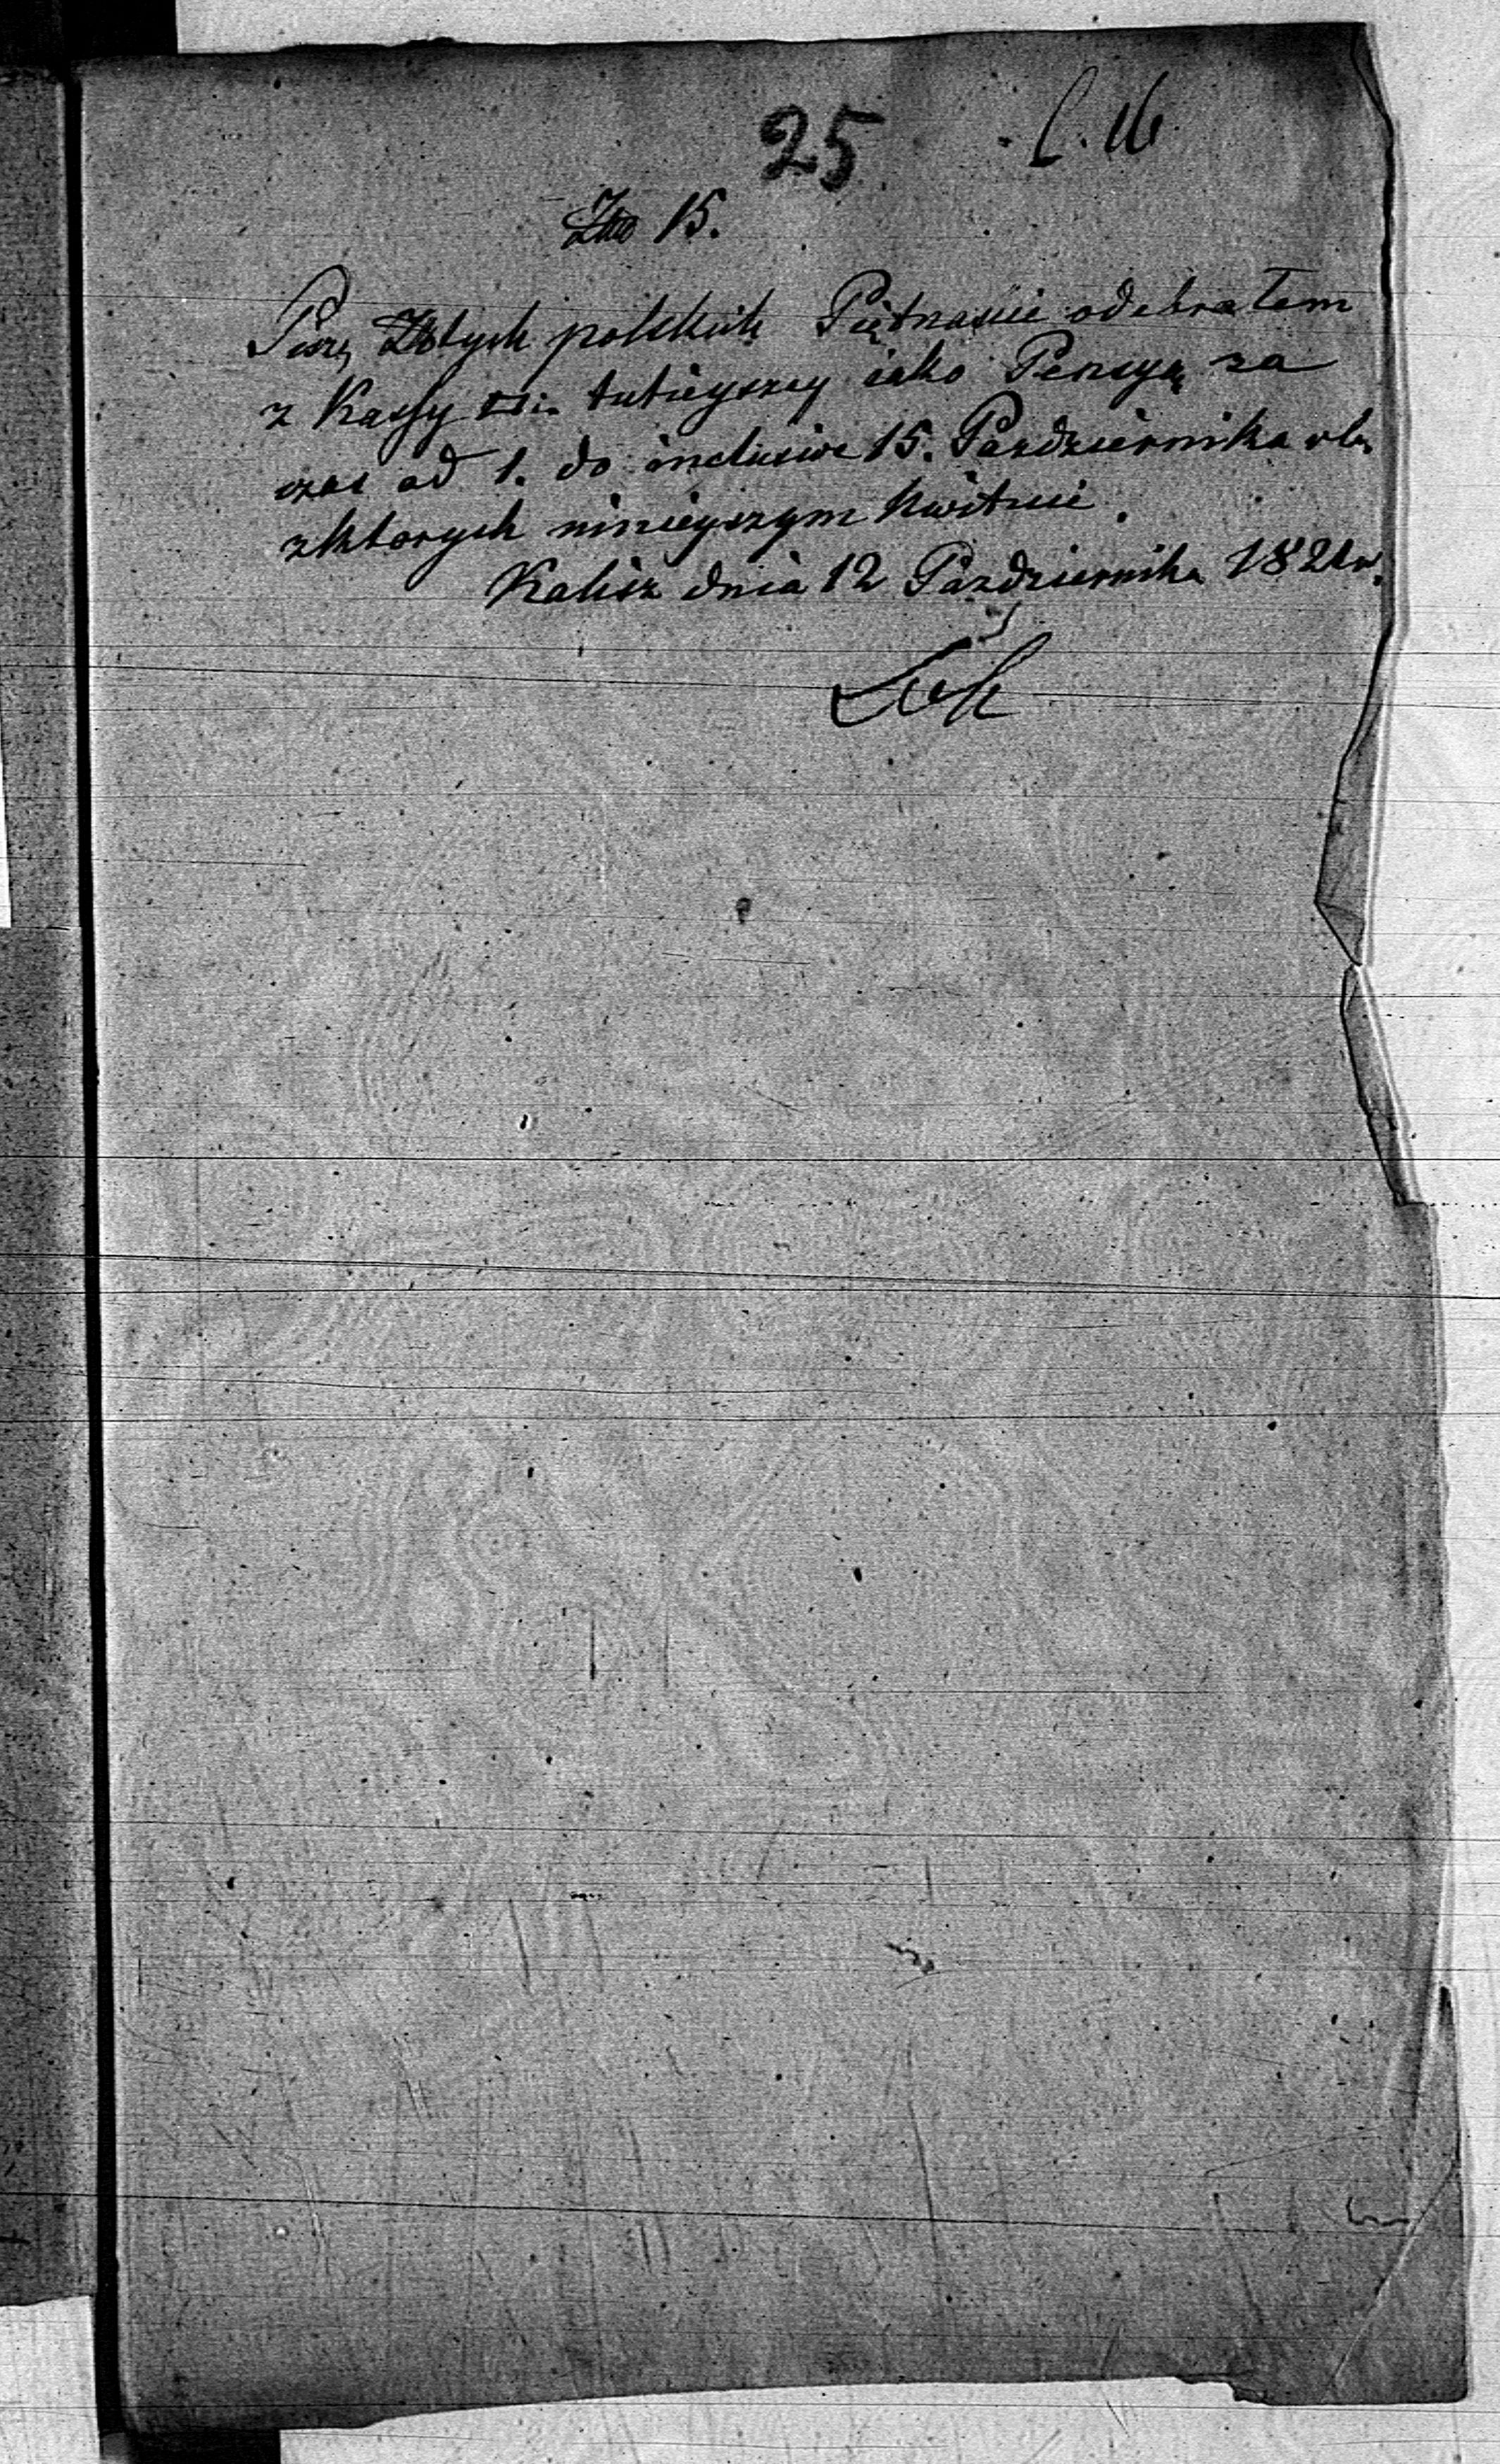 25
Zło 15.
Piszę Złotych polskich Piętnaście odebrałem
z Kassy tuteyszey iako Pensyą za
czas od 1. do inclusive 15. Pazdziernika rb.
z ktorych ninieyszym kwituie.
Kalisz dnia 12 Pazdziernika 1821 r.